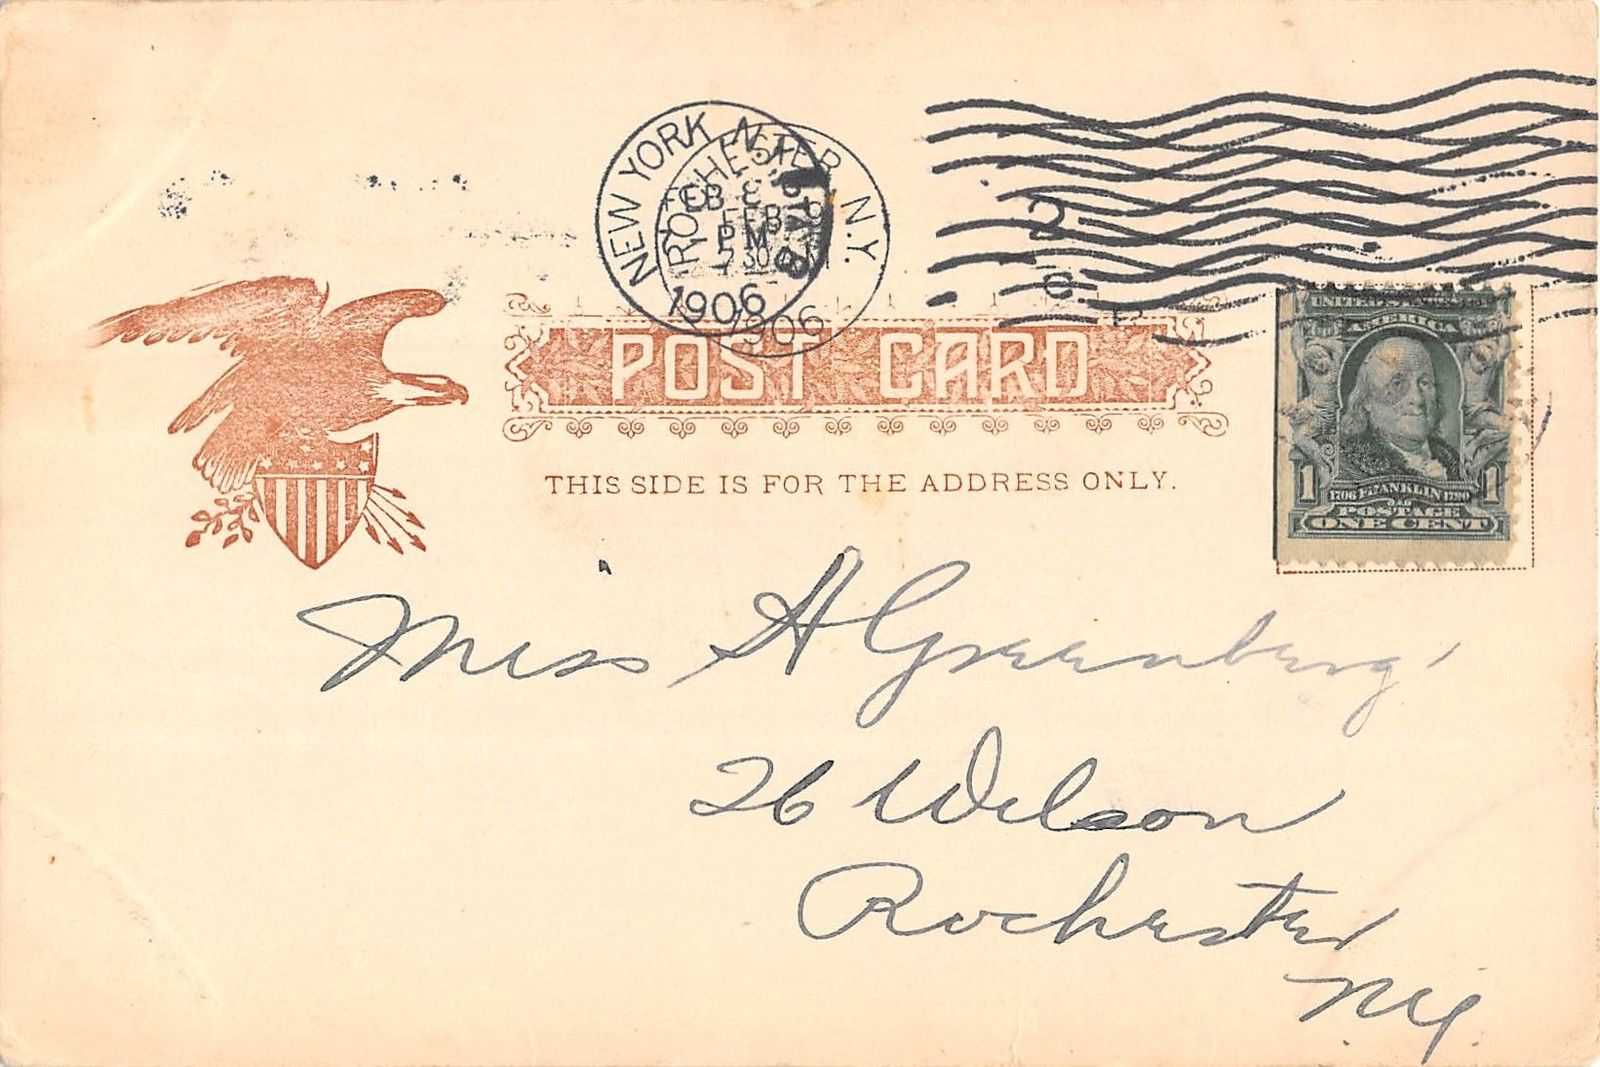 NEW YORK N.Y. STA.
FEB 8
P M
1906
ROCHESTER, N.Y.
FEB 9
7 30 AM
1906
UNITED STATES OF
AMERICA
POST CARD
THIS SIDE IS FOR THE ADDRESS ONLY.
1 1706 FRANKLIN 1790 1
POSTAGE
ONE CENT
Miss A Greenberg
26 Wilson
Rochester
N.Y.